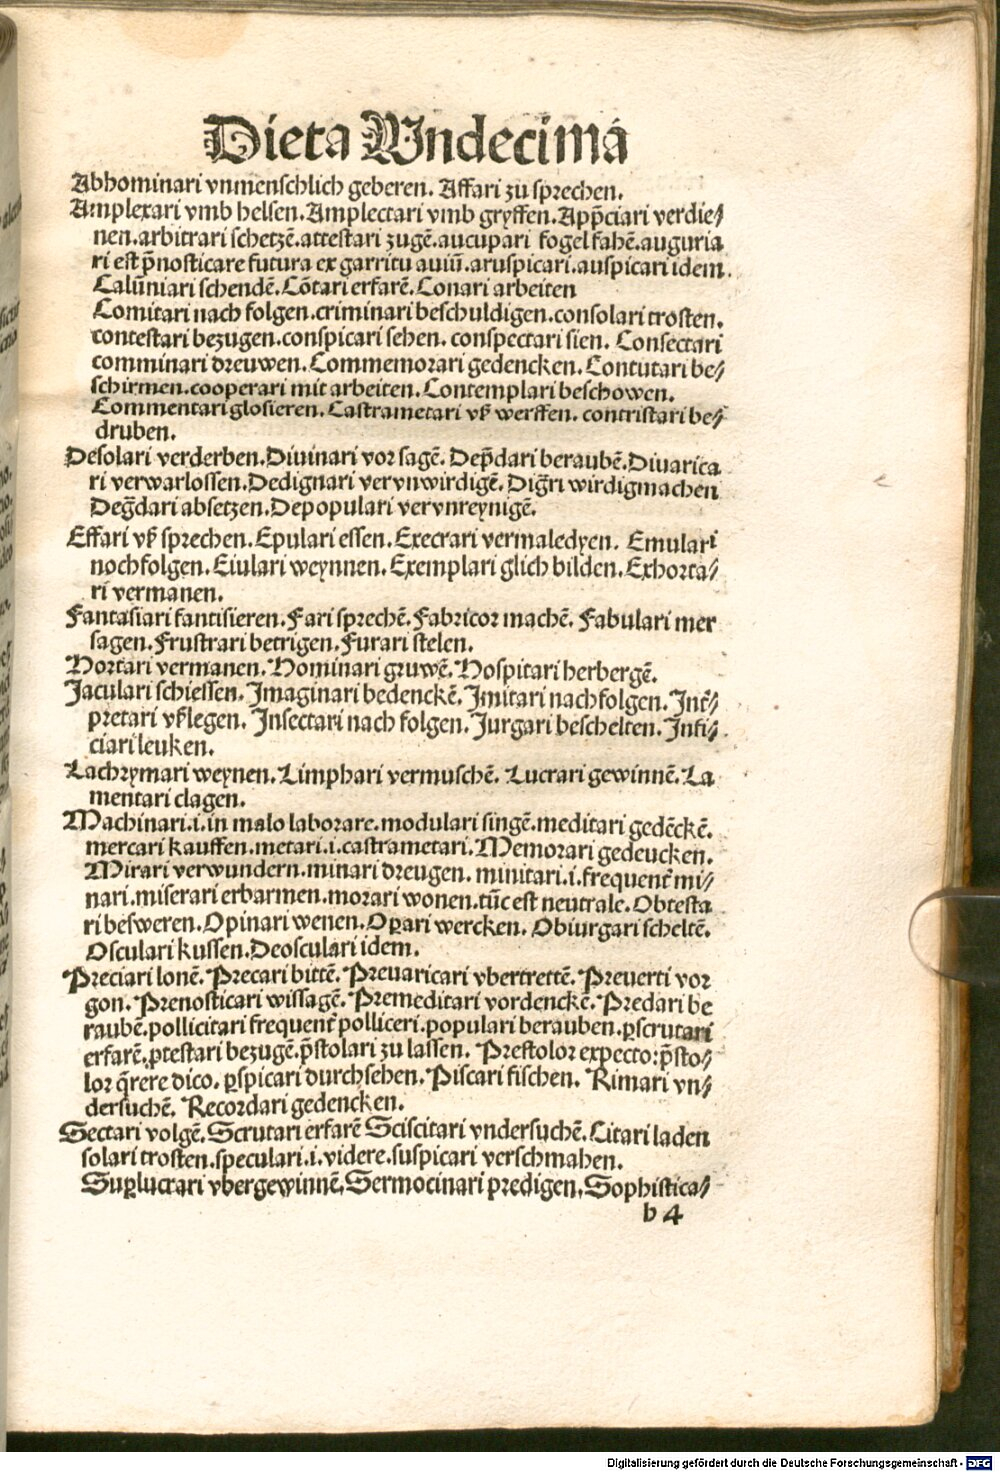 Dieta Undecima
Abhominari vnmenschlich geberen. Affari zu sprechen.
Amplexari vmb helsen. Amplectari vmb gryffen. App̄ciari verdie⸗
nen. arbitrari schetzē. attestari zugē. aucupari fogel fahē. auguria
ri est p̄nosticare futura ex garritu auiū. aruspicari. auspicari idem.
Calūniari schendē. Cōtari erfarē. Conari arbeiten
Comitari nach folgen. criminari beschuldigen. consolari trosten.
contestari bezugen. conspicari sehen. conspectari sien. Consectari
comminari dreuwen. Commemorari gedencken. Contutari be⸗
schirmen. cooperari mit arbeiten. Contemplari beschowen.
Commentari glosieren. Castrametari vß werffen. contristari be⸗
druben.
Desolari verderben. Diuinari vor sagē. Dep̄dari beraubē. Diuarica
ri verwarlossen. Dedignari vervnwirdigē. Digr̄i wirdigmachen
Deg̃dari absetzen. Depopulari vervnreynigē.
Effari vß sprechen. Epulari essen. Execrari vermaledyen. Emulari
nochfolgen. Eiulari weynnen. Exemplari glich bilden. Exhorta⸗
ri vermanen.
Fantasiari fantisieren. Fari sprechē. Fabricor machē. Fabulari mer
sagen. Frustrari betrigen. Furari stelen.
Hortari vermanen. Hominari gruwē. Hospitari herbergē.
Jaculari schiessen. Jmaginari bedenckē. Jmitari nach folgen. Jnt̄⸗
pretari vßlegen. Jnsectari nach folgen. Jurgari beschelten. Jnfi⸗
ciari leuken.
Lachrymari weynen. Limphari vermuschē. Lucrari gewinnē. La
mentari clagen.
Machinari .i. in malo laborare. modulari singē. meditari gedēckē.
mercari kauffen. metari .i. castrametari. Memorari gedeucken.
Mirari verwundern. minari dreugen. minitari .i. frequent̄ mi⸗
nari. miserari erbarmen. morari wonen. tūc est neutrale. Obtesta
ri besweren. Opinari wenen. Oꝑari wercken. Obiurgari scheltē.
Osculari kussen. Deosculari idem.
Preciari lonē. Precari bittē. Preuaricari vbertrettē. Preuerti vor
gon. Prenosticari wissagē. Premeditari vordenckē. Predari be
raubē. pollicitari frequent̄ polliceri. populari berauben. ꝑscrutari
erfarē. ꝓtestari bezugē. p̄stolari zu lassen. Prestolor expecto: p̄sto⸗
lor q̄rere dico. ꝑspicari durchsehen. Piscari fischen. Rimari vn⸗
dersuchē. Recordari gedencken.
Sectari volgē. Scrutari erfarē Sciscitari vndersuchē. Citari laden
solari trosten. speculari .i. videre. suspicari verschmahen.
Suꝑlucrari vbergewinnē. Sermocinari predigen. Sophistica⸗
b 4
Digitalisierung gefördert durch die Deutsche Forschungsgemeinschaft - DFG